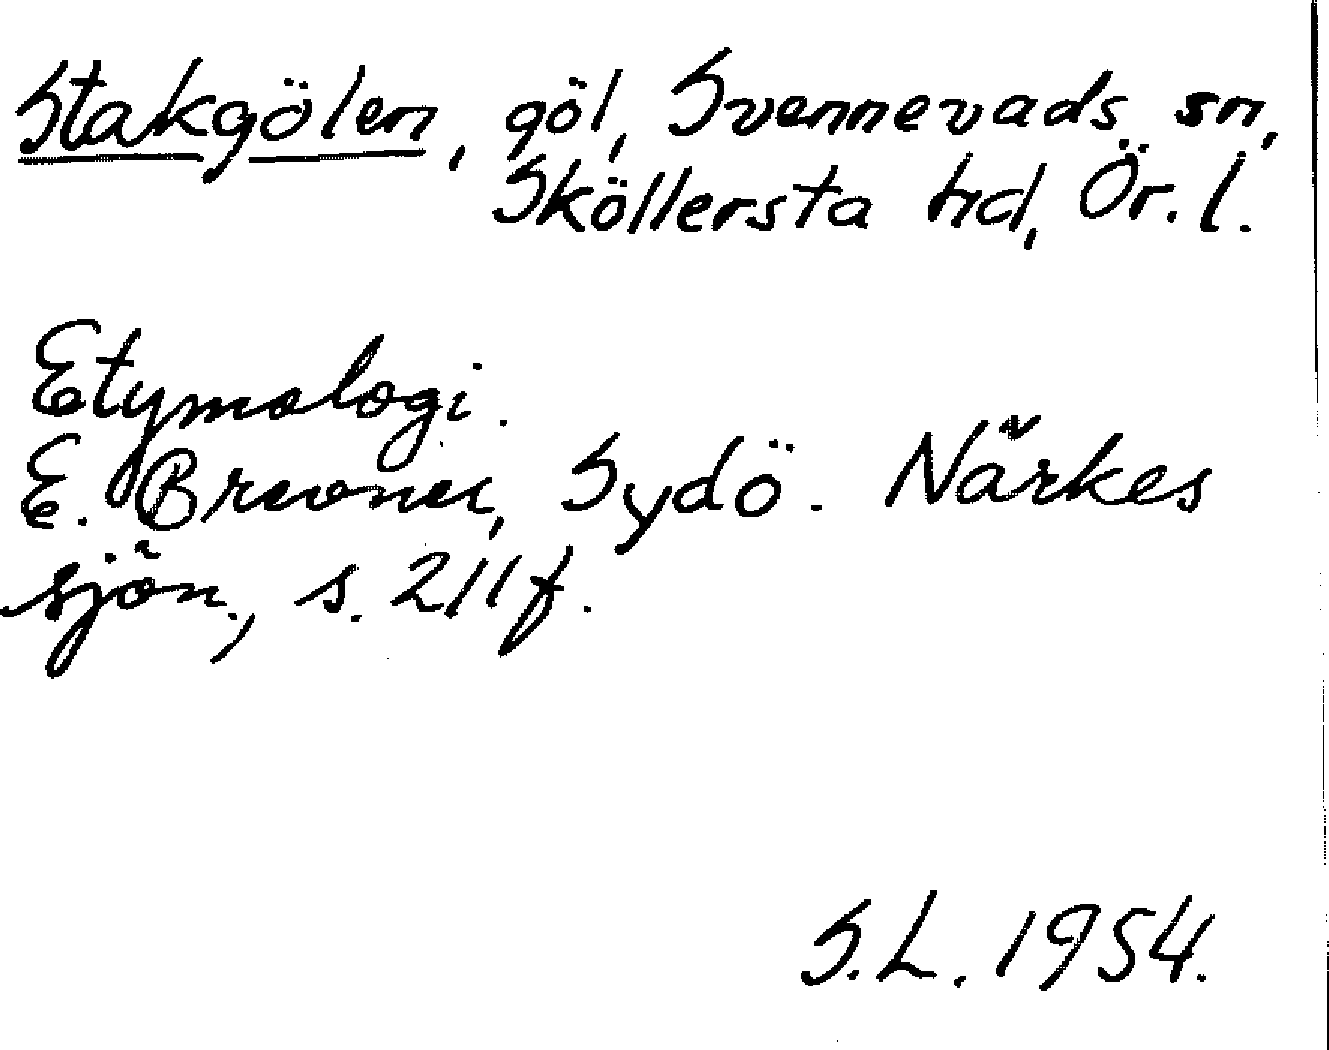 Stakgölen, göl, Svennevads sn,
Sköllersta hd, Ör. l.
Etymologi.
E. Brevner, Sydö. Närkes
sjön., s. 211 f.
S.L. 1954.